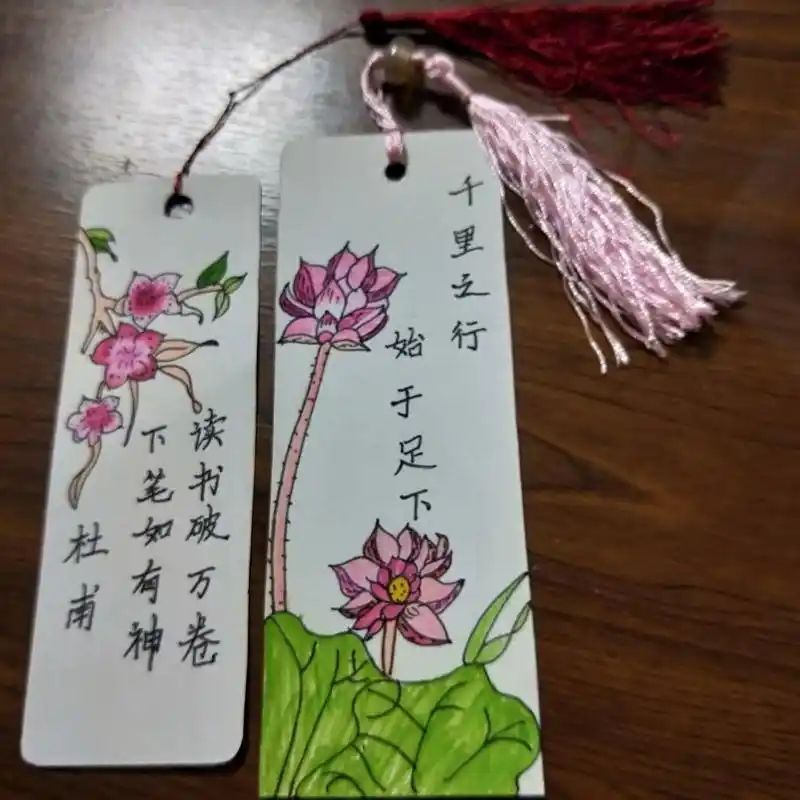 读书破万卷
下笔如有神
杜甫
千里之行
始于足下